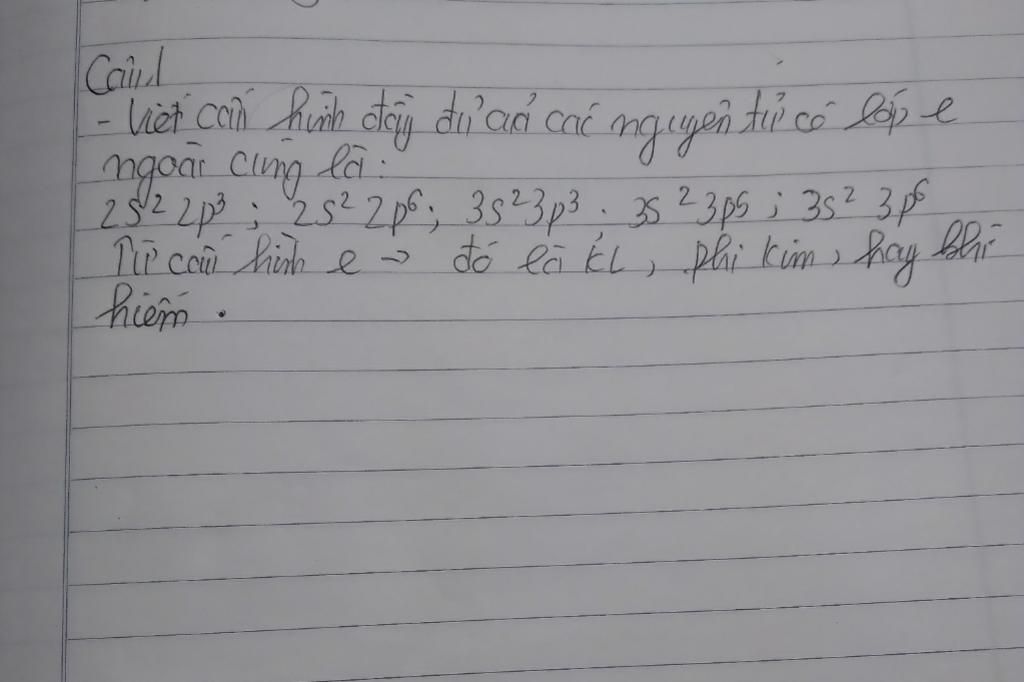 Câu 1
- Viết cấu hình đầy đủ của các nguyên tử có lớp e
ngoài cùng là:
2s² 2p³ ; 2s² 2p⁶ ; 3s² 3p³ ; 3s² 3p5 ; 3s² 3p⁶
Từ cấu hình e -> đó là KL, phi kim, hay khí
hiếm.